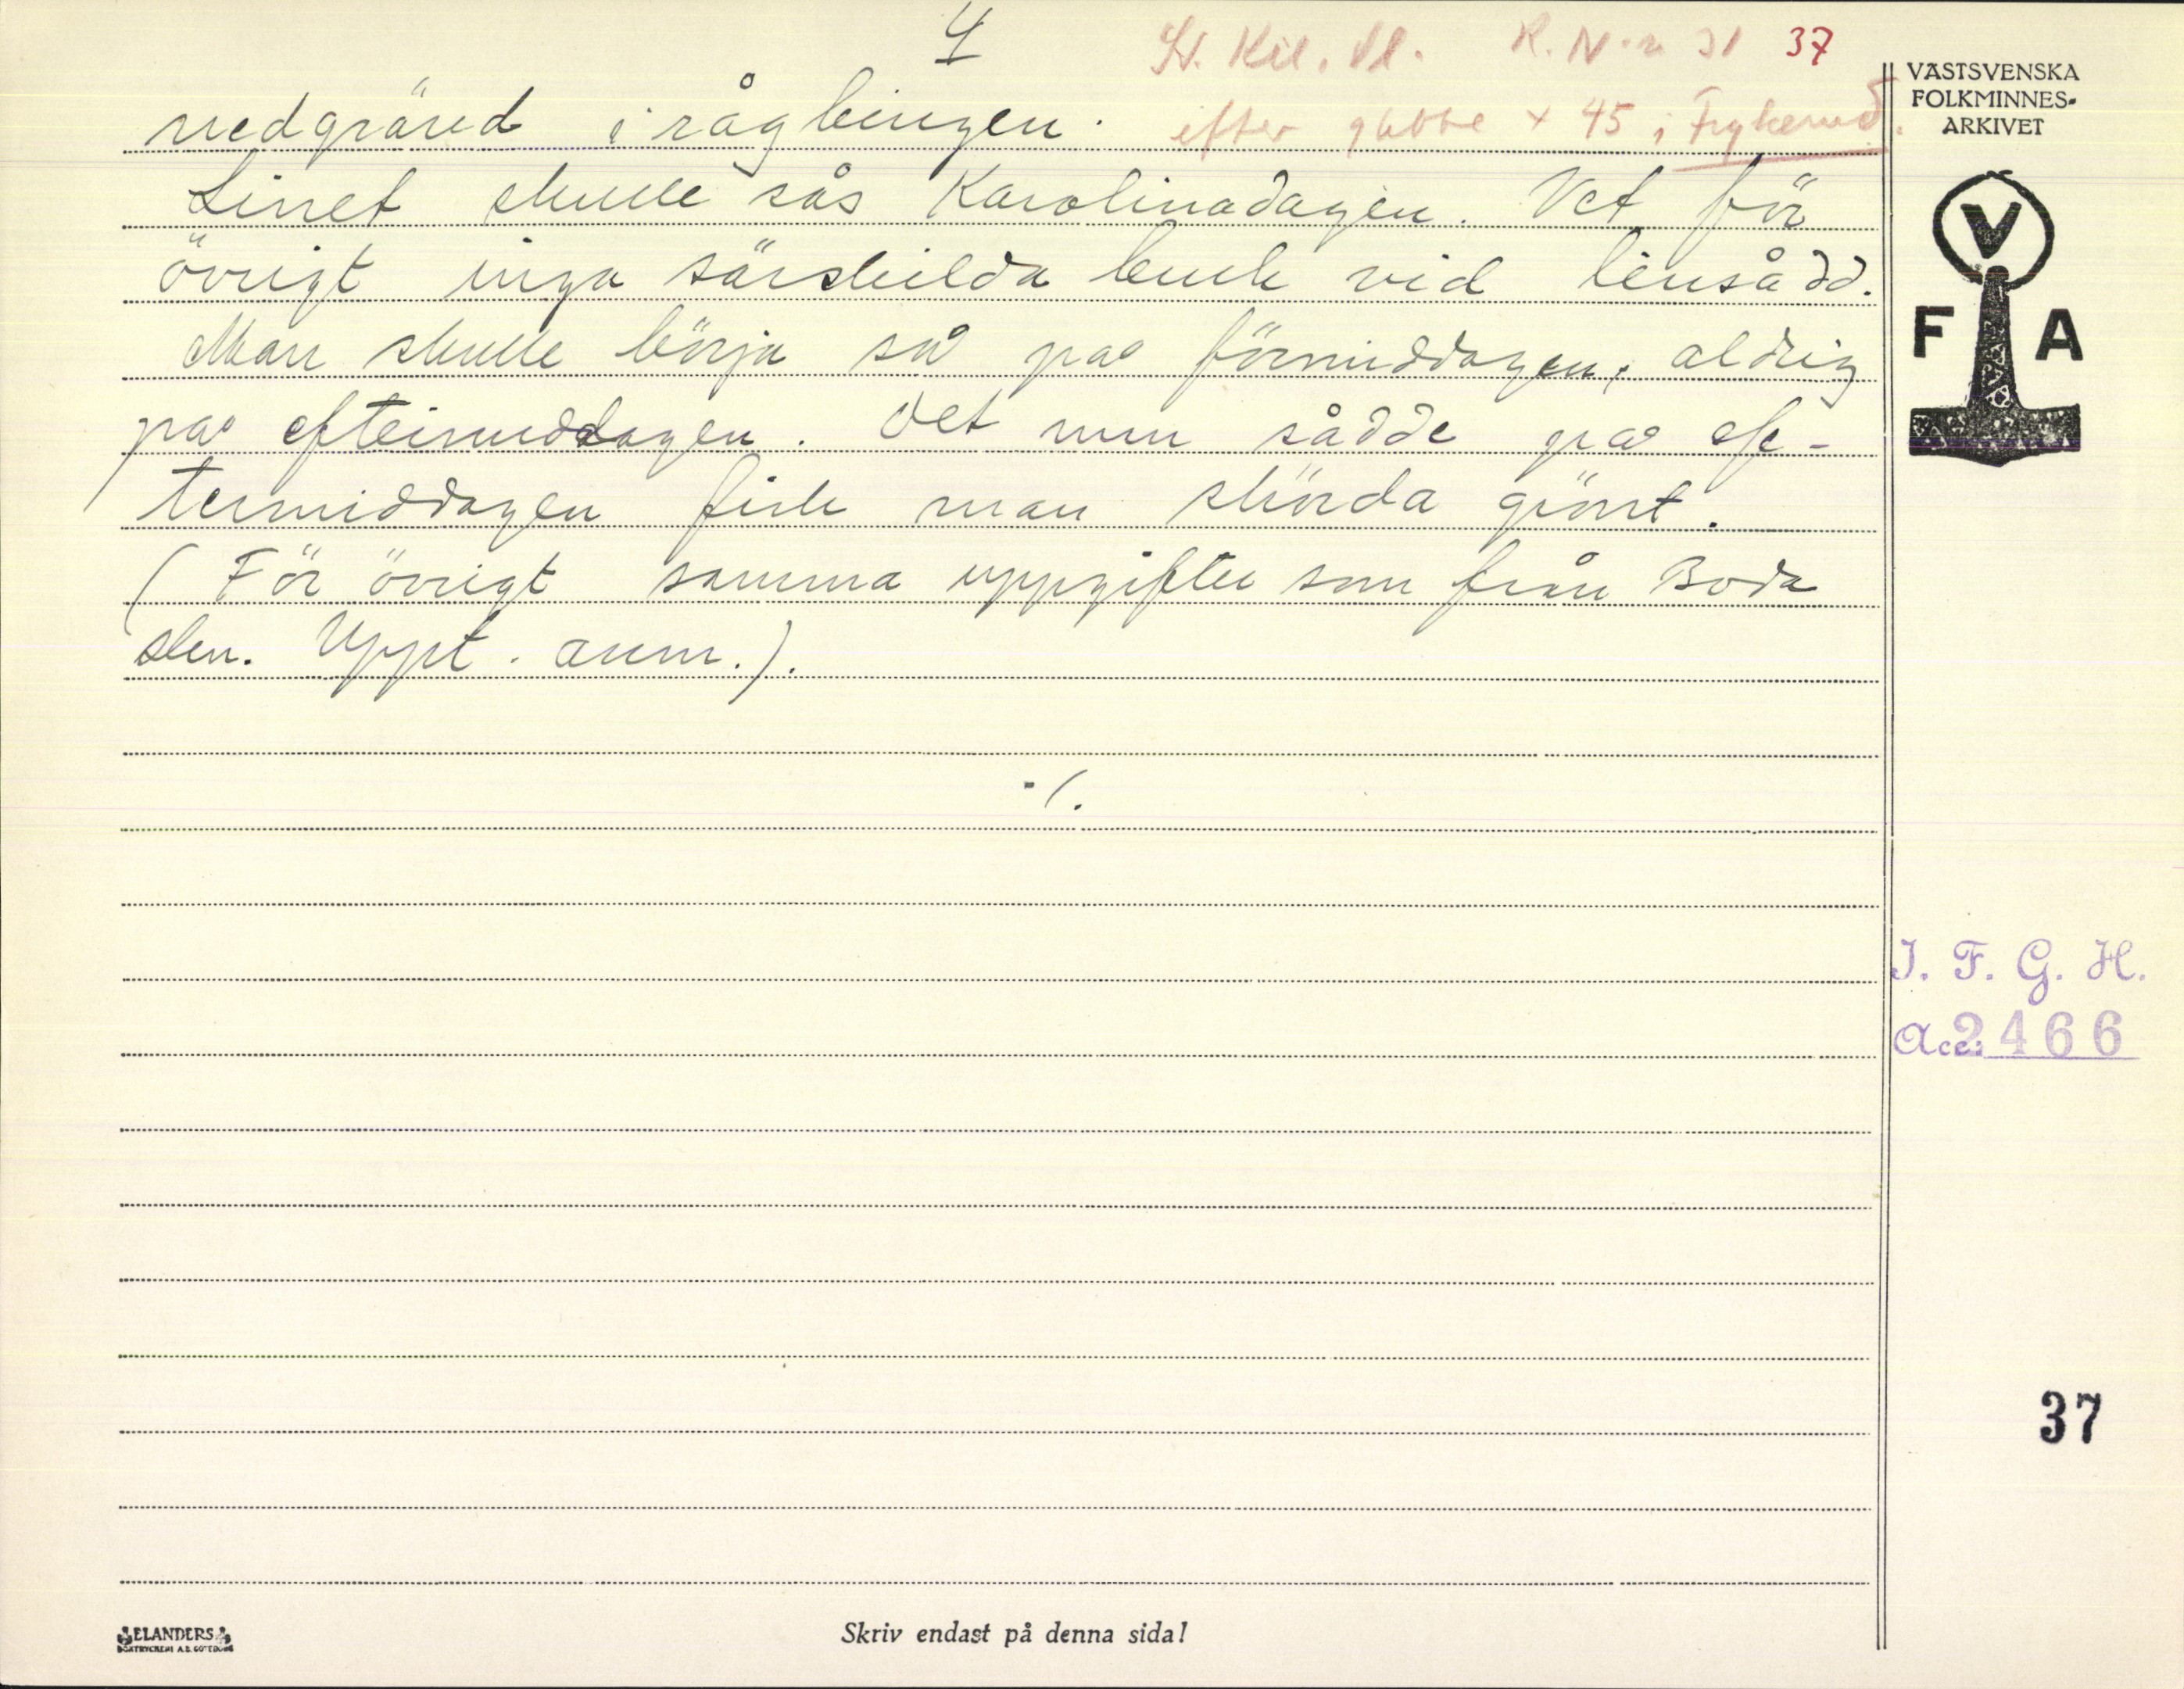 4
St. Kil. Vl. R. N-n 31 37
nedgrävd i rågbingen.
efter gubbe + 45 i Frykerud.
Linet skulle sås Karolinadagen. Vet för
övrigt inga särskilda bruk vid linsådd.
Man skulle börja så på förmiddagen, aldrig
på eftermiddagen. Det man sådde på ef-
termiddagen fick man skörda grönt.
(För övrigt samma uppgifter som från Boda
skn. Uppt. anm.).
./.
VÄSTSVENSKA
FOLKMINNES-
ARKIVET
V
F A
I. F. G. H.
Acc: 2466
37
ELANDERS
BOKTRYCKERI A.B. GÖTEBORG
Skriv endast på denna sida!